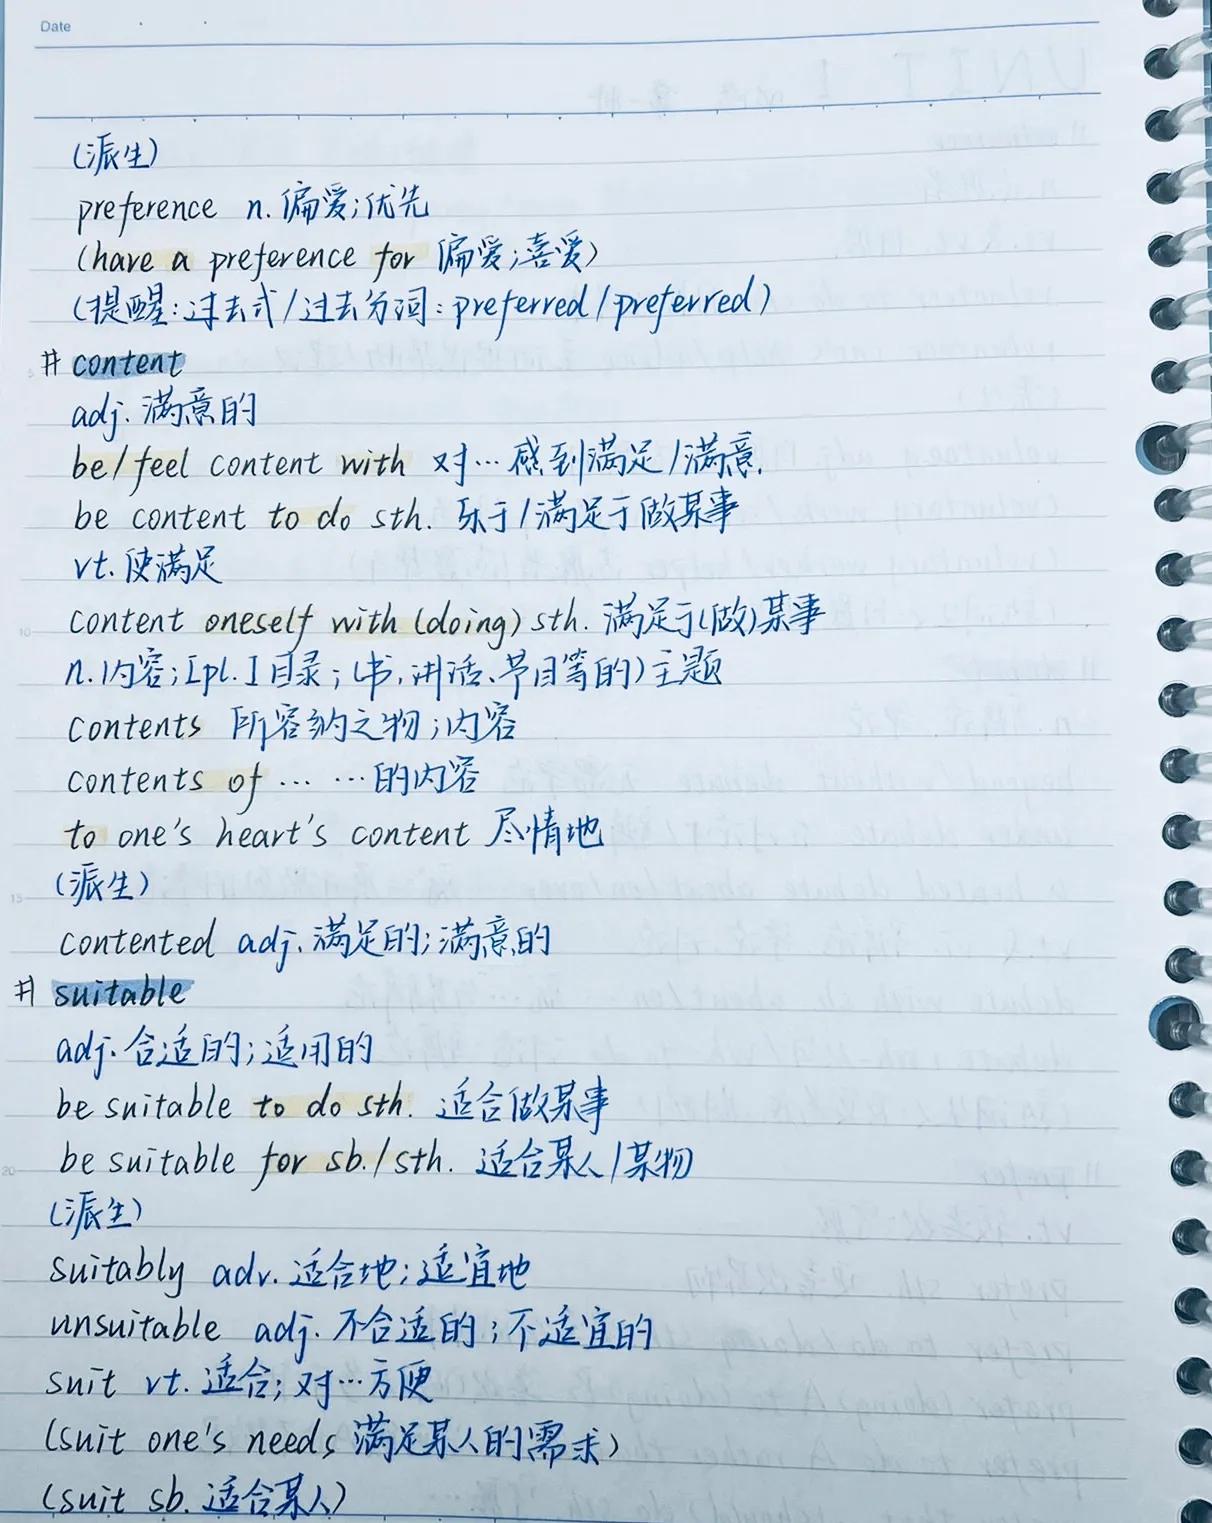 Date
(派生)
preference n. 偏爱;优先
(have a preference for 偏爱;喜爱)
(提醒:过去式/过去分词:preferred/preferred)
# content
adj. 满意的
be/feel content with 对…感到满足/满意.
be content to do sth. 乐于/满足于做某事
vt. 使满足
content oneself with (doing) sth. 满足于(做)某事
10
n. 内容;[pl.]目录;(书,讲话、节目等的)主题
contents 所容纳之物;内容
contents of … …的内容
to one's heart's content 尽情地
(派生)
15
contented adj. 满足的;满意的
# suitable
adj. 合适的;适用的
be suitable to do sth. 适合做某事
be suitable for sb./sth. 适合某人/某物
20
(派生)
suitably adv. 适合地;适宜地
unsuitable adj. 不合适的;不适宜的
suit vt. 适合;对…方便
(suit one's needs 满足某人的需求)
(suit sb. 适合某人)